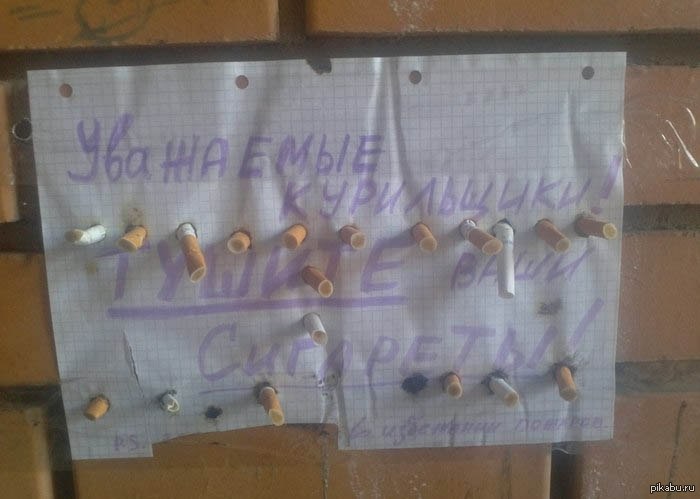 Уважаемые
курильщики!
Тушите ваши
Сигареты!
P.S. во избежании пожаров.
pikabu.ru